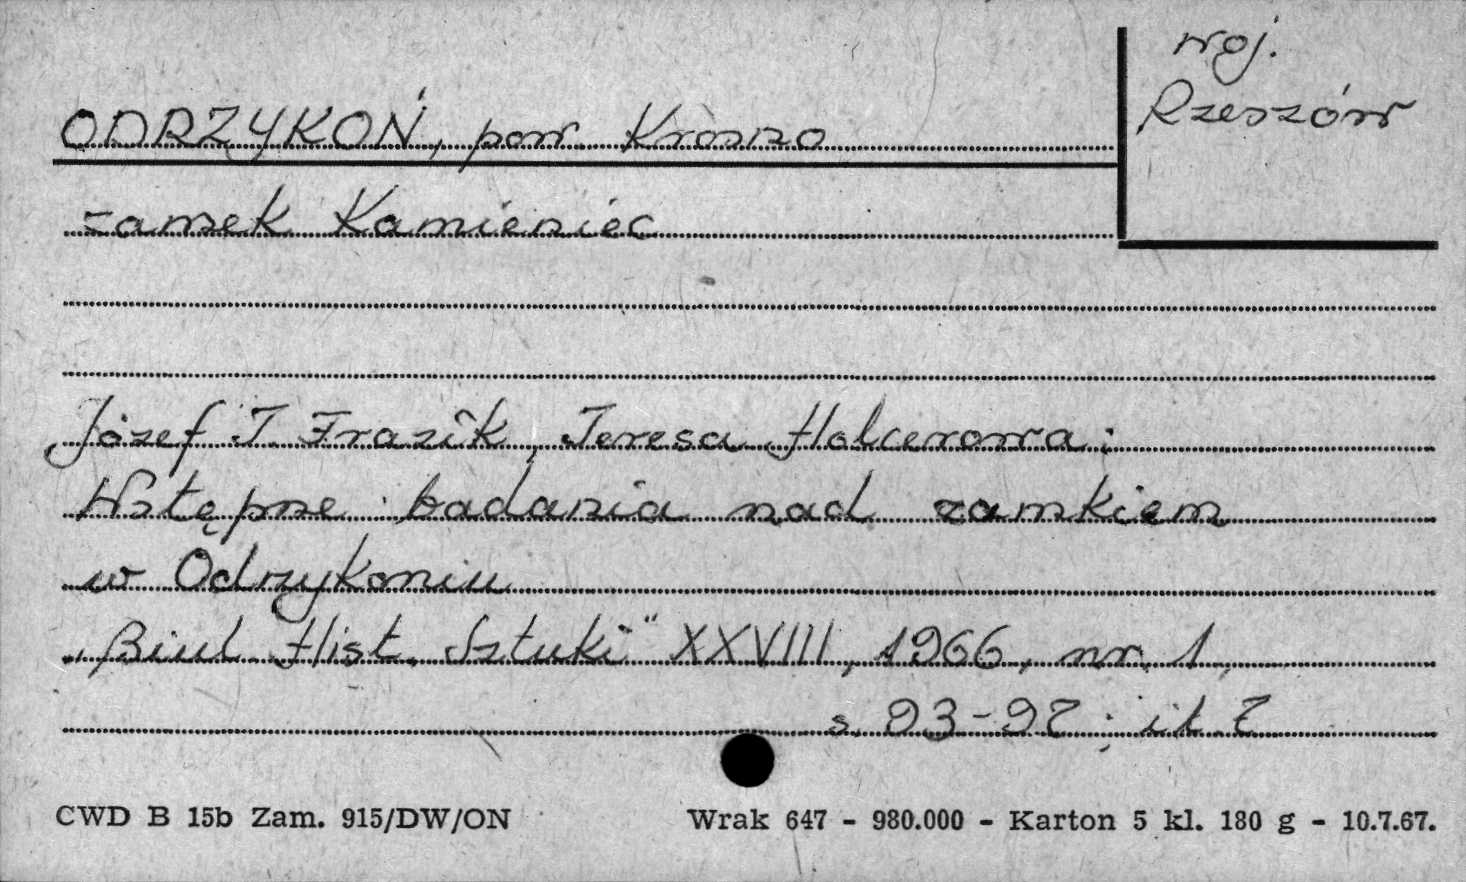 woj.
Rzeszów
ODRZYKOŃ, pow. Krosno
zamek Kamieniec
Józef T. Frazik, Teresa Holcerowa:
Wstępne badania nad zamkiem
w Odrzykoniu
„Biul. Hist. Sztuki" XXVIII, 1966, nr. 1,
s. 93-97; il. 7
CWD B 15b Zam. 915/DW/ON Wrak 647 - 980.000 - Karton 5 kl. 180 g - 10.7.67.